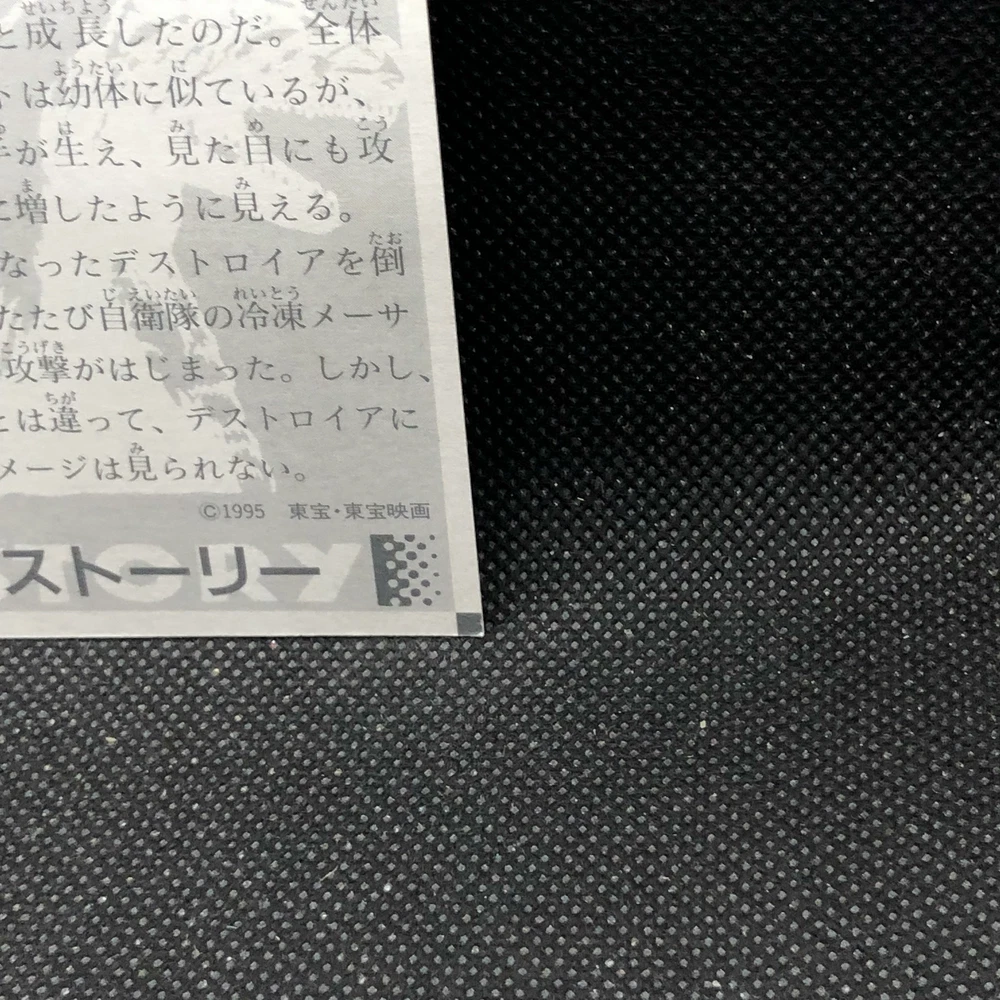 と成長したのだ。全体
は幼体に似ているが、
が生え、見た目にも攻
に増したように見える。
なったデストロイアを倒
たたび自衛隊の冷凍メーサ
攻撃がはじまった。しかし、
とは違って、デストロイアに
メージは見られない。
©1995 東宝・東宝映画
ストーリー